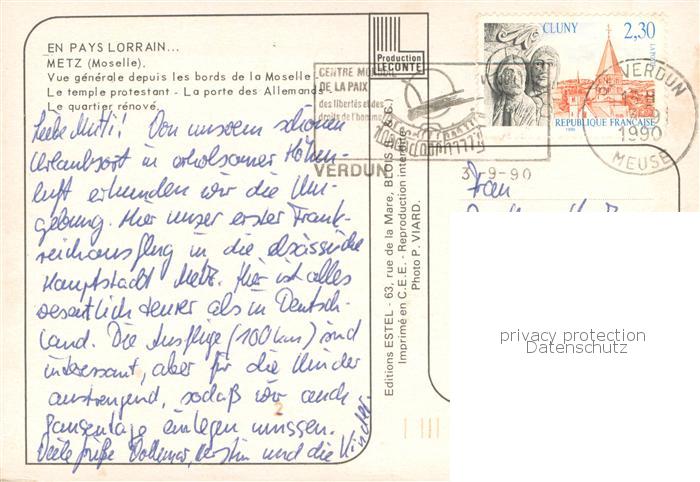 EN PAYS LORRAIN...
METZ (Moselle).
Vue générale depuis les bords de la Moselle -
Le temple protestant - La porte des Allemands
Le quartier rénové.
Production
LECONTE
CLUNY
2,30
LA POSTE
REPUBLIQUE FRANÇAISE
1990
CENTRE MONDIAL
DE LA PAIX
des libertés et des
droits de l'homme
VERDUN
VERDUN
1990
MEUSE
3-9-90
Liebe Mutti! Von unserem schönen
Urlaubsort in erholsamer Höhen-
luft erkunden wir die Um-
gebung. Hier unser erster Frank-
reichausflug in die elsässische
Hauptstadt Metz. Hier ist alles
wesentlich teurer als in Deutsch-
land. Die Ausflüge (100 km) sind
interessant, aber für die Kinder
anstrengend, sodaß wir auch
Pausentage einlegen müssen.
Viele Grüße Volkmar, Kerstin und die Kinder.
2
Frau
Editions ESTEL - 63, rue de la Mare, BLOIS
Imprimé en C.E.E. - Reproduction interdite
Photo P. VIARD.
privacy protection
Datenschutz